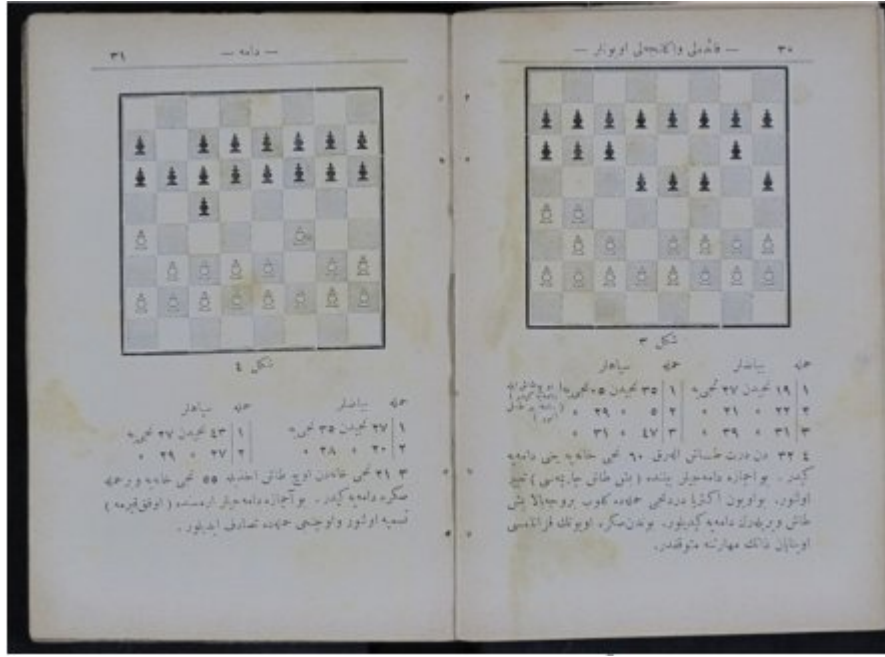 ٣٠ — فائده‌لی واکلنجه‌لی اویونلر —
شكل ٣
حمله بیاضلر حمله سیاهلر
١ ١٩ نجیدن ٢٧ نجی‌یه ١ ٣٥ نجیدن ٠٥ نجی‌یه
٢ ٢٢ » ٢١ » ٢ ٥ » ٢٩ »
٣ ٣١ » ٣٩ » ٣ ٤٧ » ٣١ »
٤ ٣٢ دن درت طاش اله‌رق ٦٠ نجی خانه‌یه یعنی دامه‌یه
کیدر . بو اچمازه دامه‌جیلر بیننده ( بش طاش ) تعبیر
اولنور. بو اویون اکثریا دردنجی حمله‌ده بش
طاش ویریله‌رك دامه‌یه کیدیلور. بوندن‌صکره اویونك قزانلمسی
اوینایان ذاتك مهارتنه متوقفدر.
— دامه — ٣١
شكل ٤
حمله بیاضلر حمله سیاهلر
١ ٢٧ نجیدن ٣٥ نجی‌یه ١ ٤٣ نجیدن ٢٧ نجی‌یه
٢ ٢٠ » ٢٨ » ٢ ٢٧ » ٢٩ »
٣ ٢١ نجی خانه‌دن اوچ طاش اخذیله ٥٥ نجی خانه‌یه و بر حمله
صکره دامه‌یه کیدر . بو آچمازه دامه‌جیلر ارەسنده
تسمیه اولنور واوچنجی حمله‌ده تصادف ایدیلور .